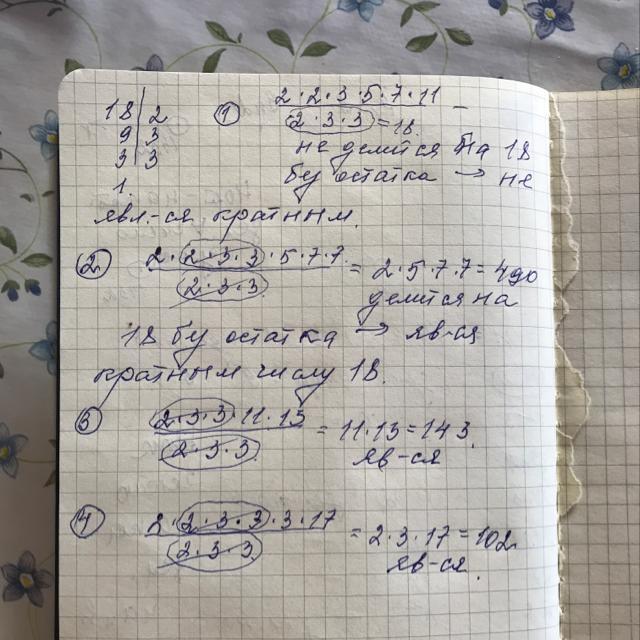 18 | 2
9 | 3
3 | 3
1.
① 2·2·3·5·7·11 –
2·3·3 = 18.
не делится на 18
без остатка → не
явл-ся кратным.
② 2·2·3·3·5·7·7 = 2·5·7·7 = 490
2·3·3
делится на
18 без остатка → яв-ся
кратным числу 18.
③ 2·3·3·11·13 = 11·13 = 143.
2·3·3
яв-ся
④ 2·2·3·3·3·17 = 2·3·17 = 102
2·3·3
яв-ся.